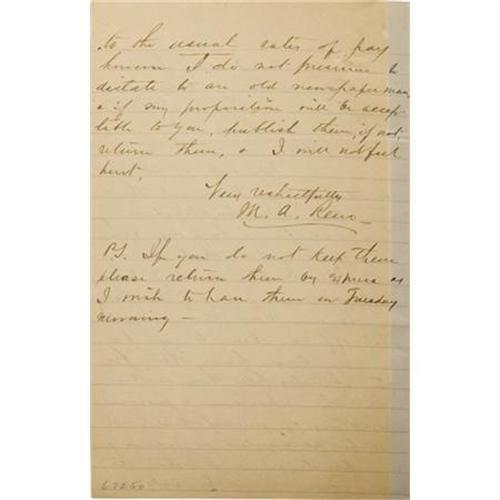 to the usual rates of pay
however I do not presume to
dictate to an old newspaper man,
& if my proposition will be accep
table to you, publish them, if not,
return them, & I will not feel
hurt.
Very respectfully
M. A. Reno
P.S. If you do not keep them
please return them by express as
I wish to have them on Tuesday
morning —
67250